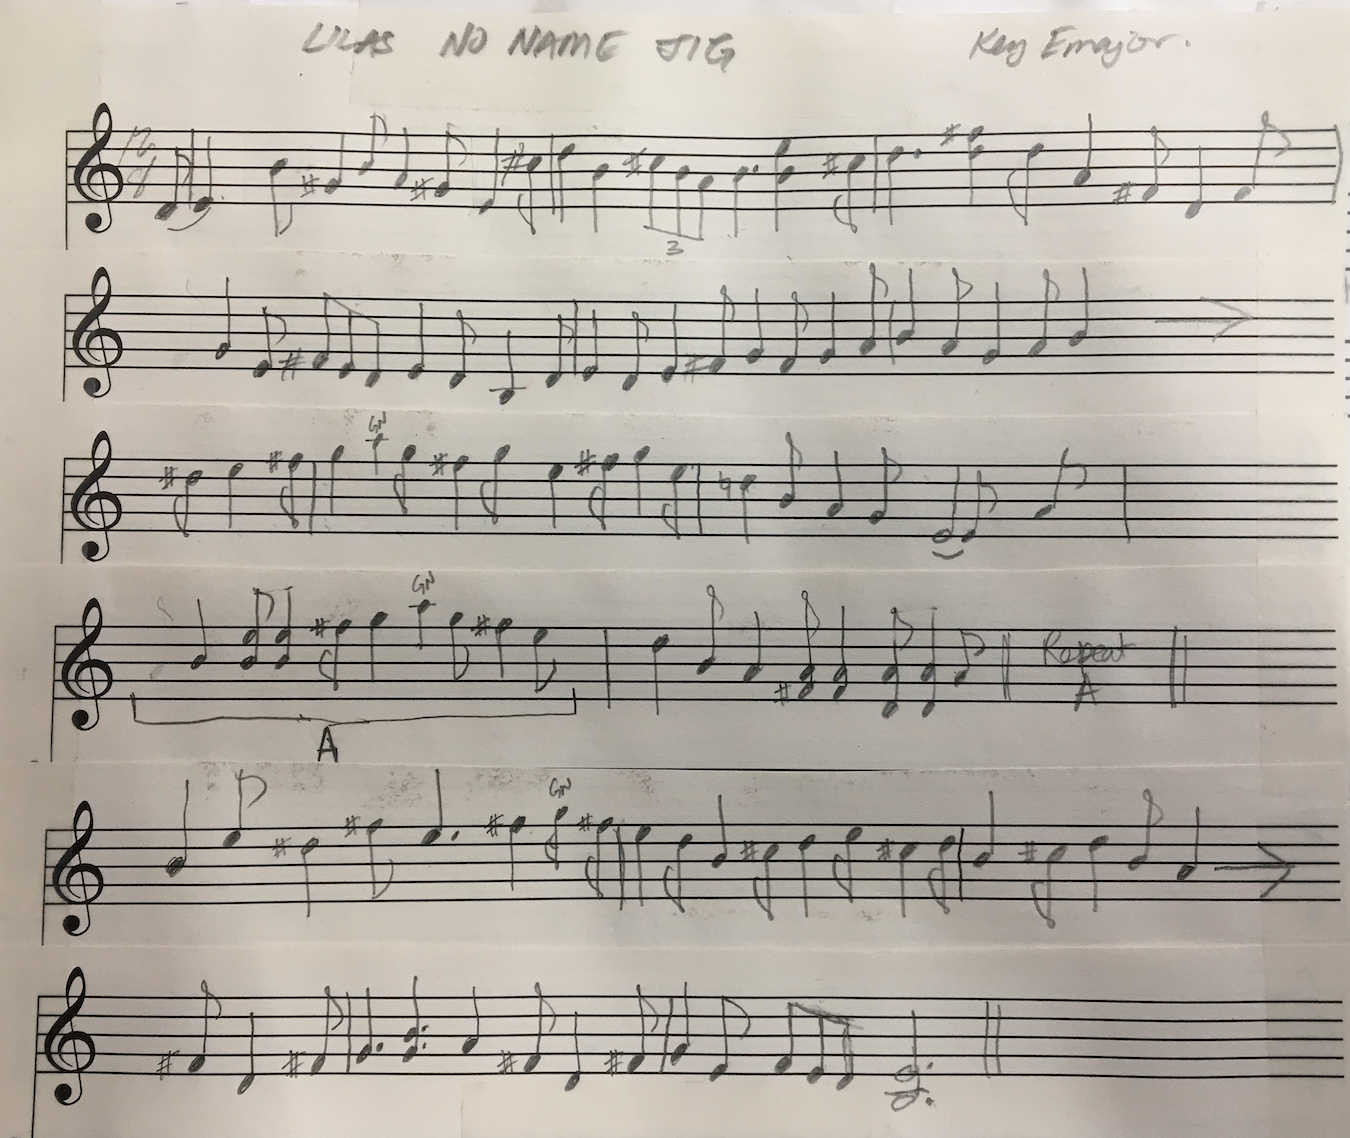 LILAS NO NAME JIG Key Emajor.
12
8
3
GN
GN
Repeat
A
A
GN